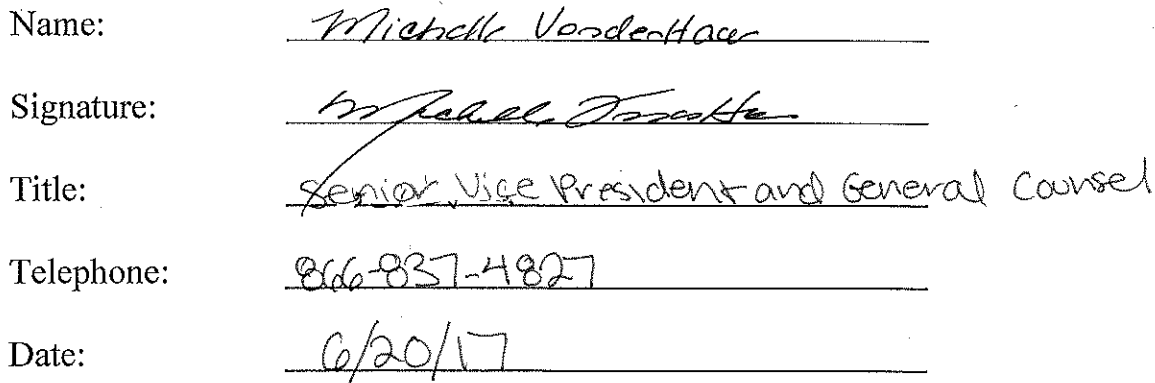 Name: Michelle VondenHaar
Signature:
Title: Senior Vice President and General Counsel
Telephone: 866-837-4827
Date: 6/20/17